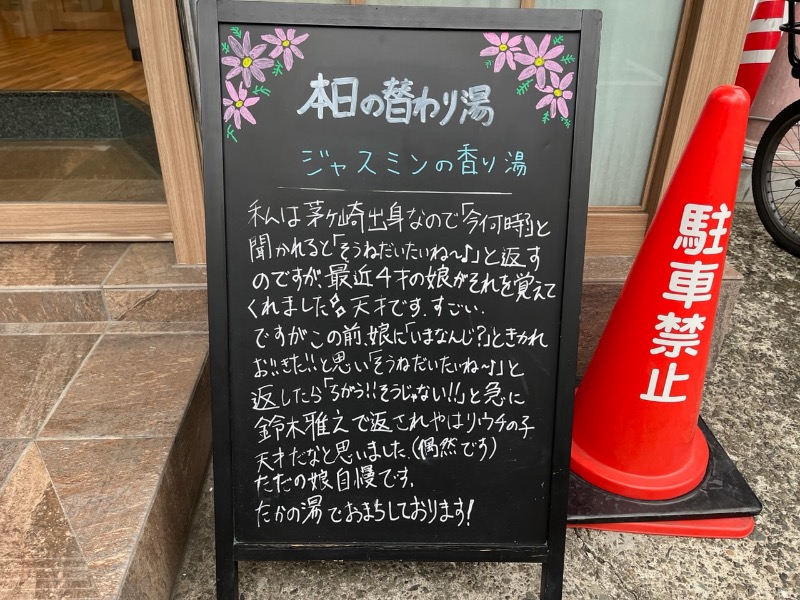 本日の替わり湯
ジャスミンの香り湯
私は茅ヶ崎出身なので「今何時?」と
聞かれると「そうねだいたいね〜♪」と返す
のですが、最近4才の娘がそれを覚えて
くれました。天才です。すごい。
ですがこの前、娘に「いまなんじ?」ときかれ
お!!きた!!と思い「そうねだいたいね〜♪」と
返したら「ちがう!!そうじゃない!!」と急に
鈴木雅之で返されやはりウチの子
天才だなと思いました。(偶然です)
ただの娘自慢です。
たかの湯でおまちしております!
駐車禁止